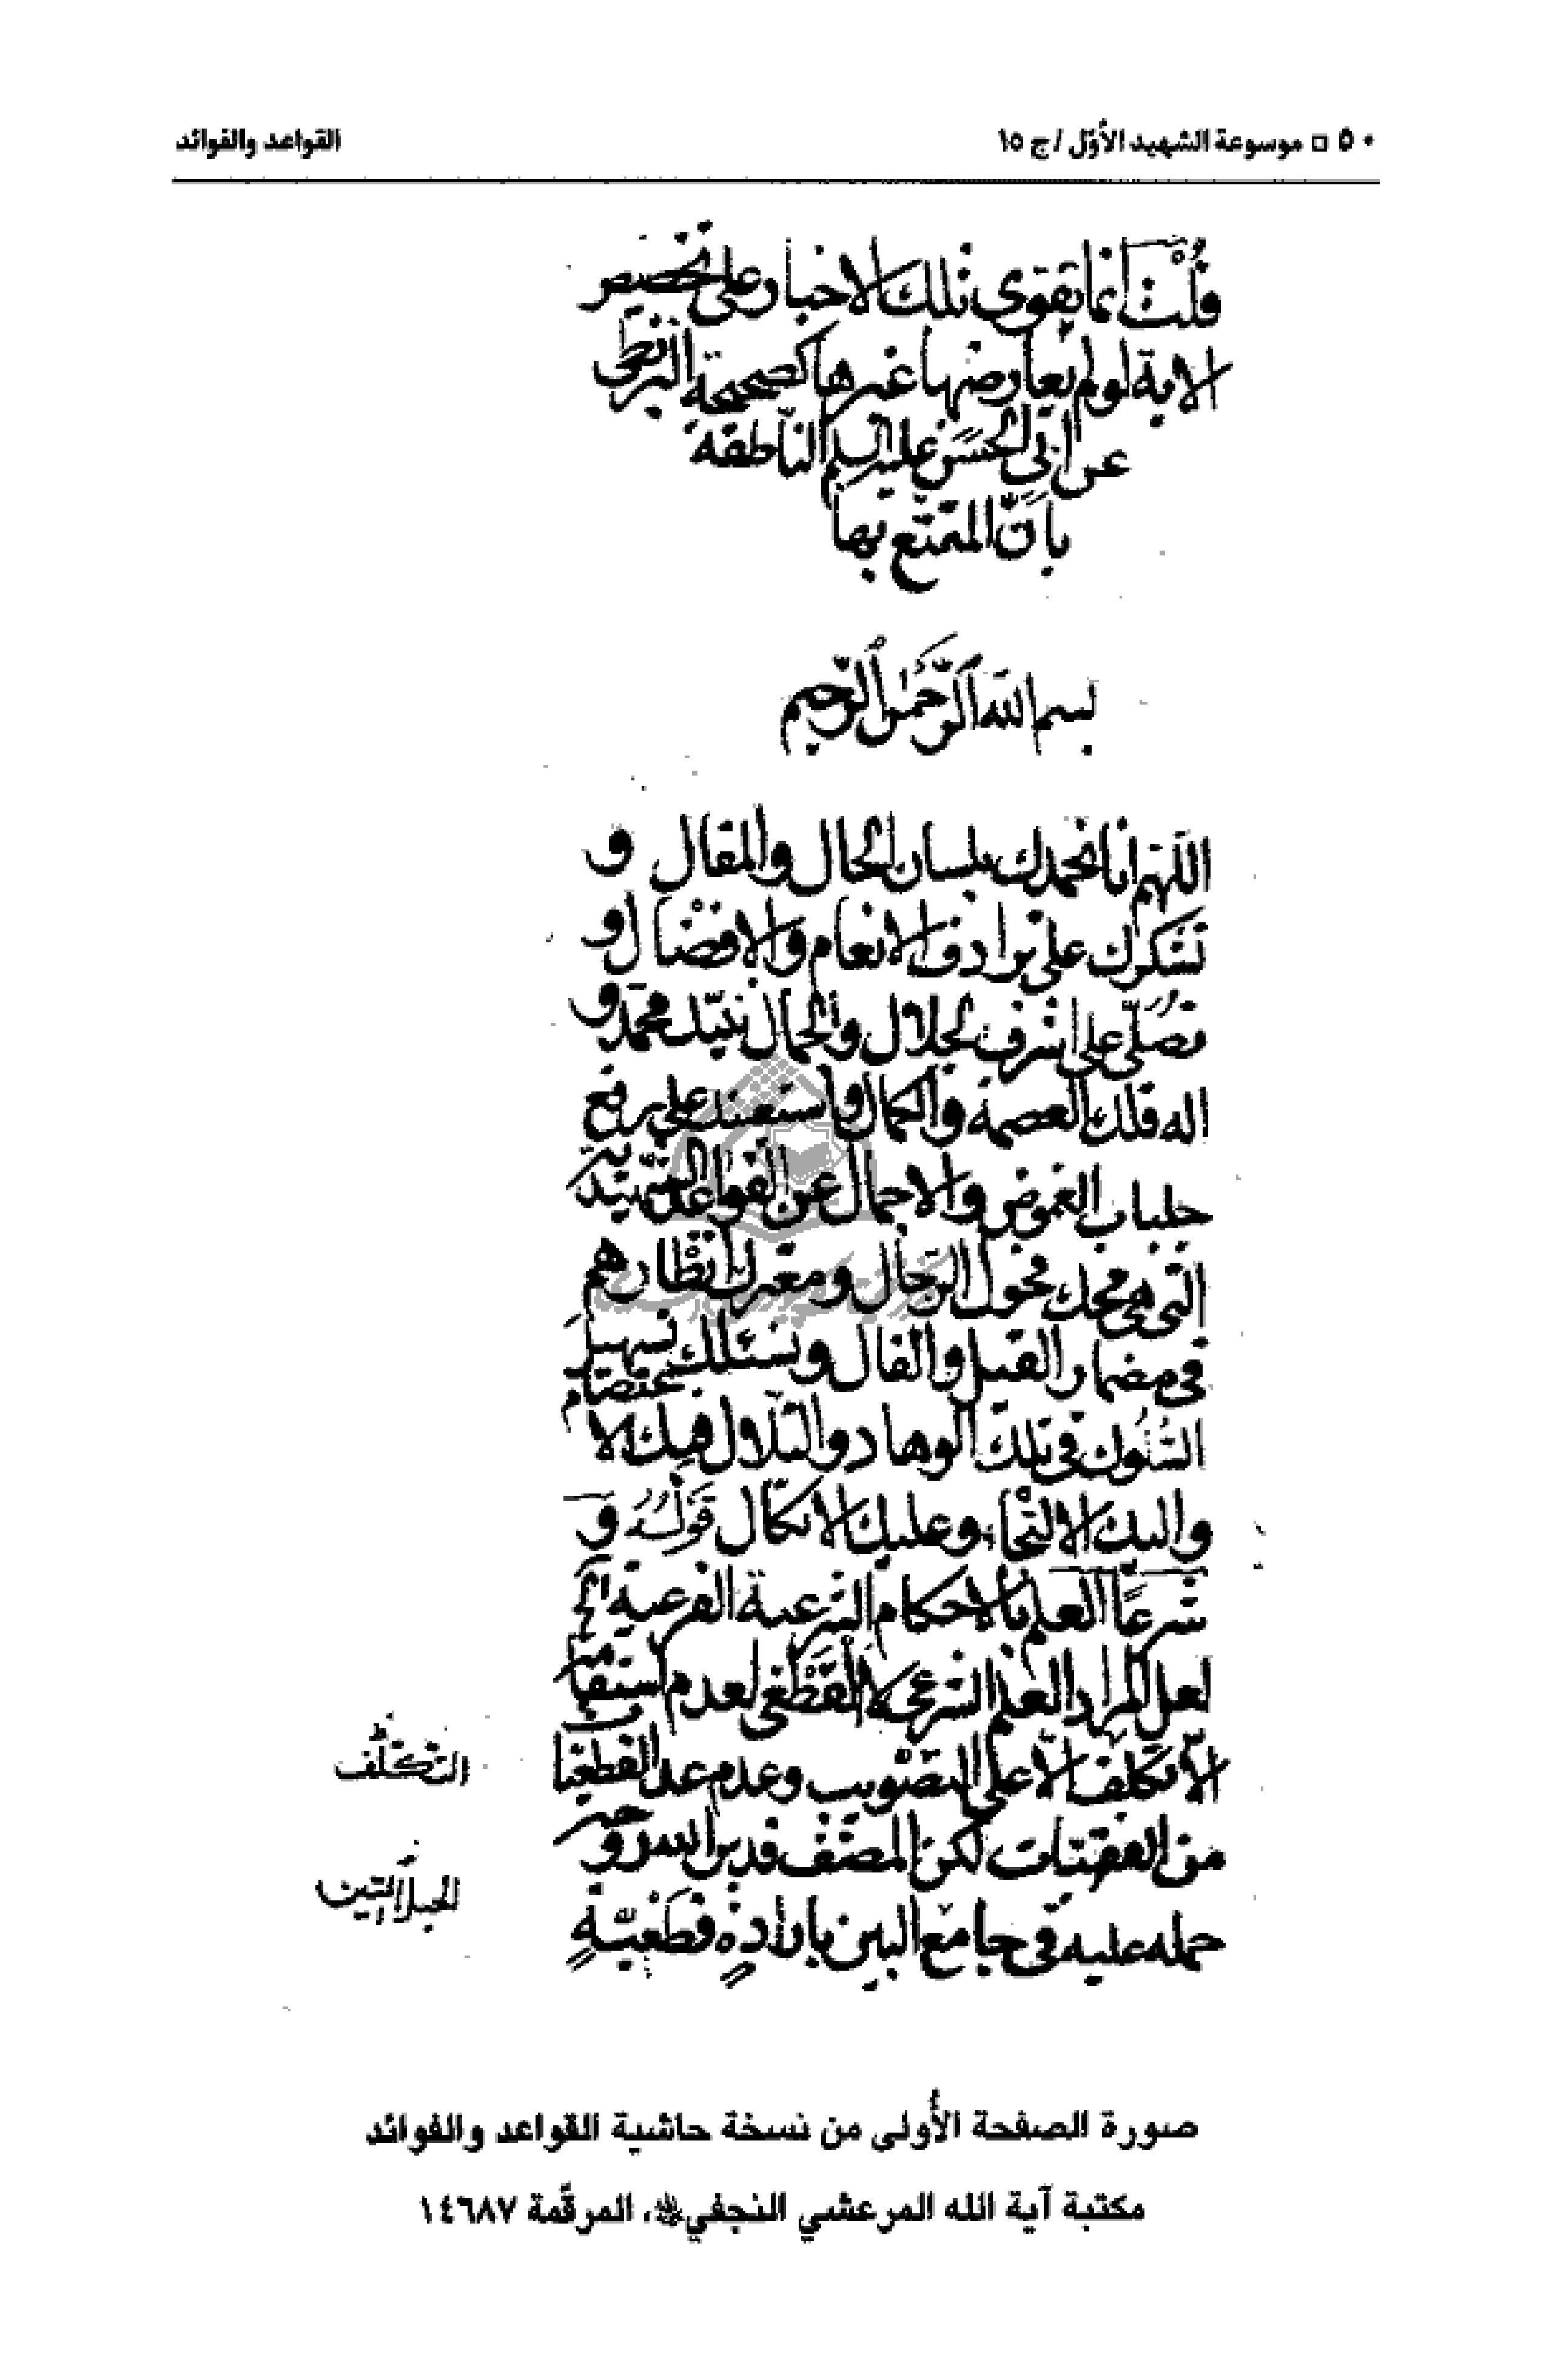 ٥٠ □ موسوعة الشهيد الأوّل / ج ١٥
القواعد والفوائد
قُلْتُ انما تقوى تلك الاخبار على تخصيص
الاية لو لم يعارضها غيرها كصحيحة البزنطى
عن أبي الحسن عليه السلم الناطقة
بانّ المتمتع بها
بسم الله الرحمن الرحيم
اللهم انا نحمدك بلسان الحال والمقال و
نشكرك على ترادف الانعام والافضال و
نصلّى على اشرف الجلال والجمال محمد و
اله فلك العصمة والكمال واستعينك على رفع
جلباب الغموض والاجمال عن القواعد
التى هى محك فحول الرجال ومعترك انظارهم
فى مضمار القيل والقال ونسئلك تسهيل
فى تلك الوهاد والتلال فبك الاعتصام
واليك الالتجاء وعليك الاتكال قوله و
شرعًا العلم بالاحكام الشرعية الفرعية الخ
لعل المراد العلم الشرعى لا القطعى لعدم استقامة
الا على التصويب وعدم عد القطعيات
من الفقهيات لكن المصنف قدس سره
حمله عليه فى جامع البين بارادة قطعيّة
التكلف
صورة الصفحة الأُولى من نسخة حاشية القواعد والفوائد
مكتبة آية الله المرعشي النجفي، المرقّمة ١٤٦٨٧